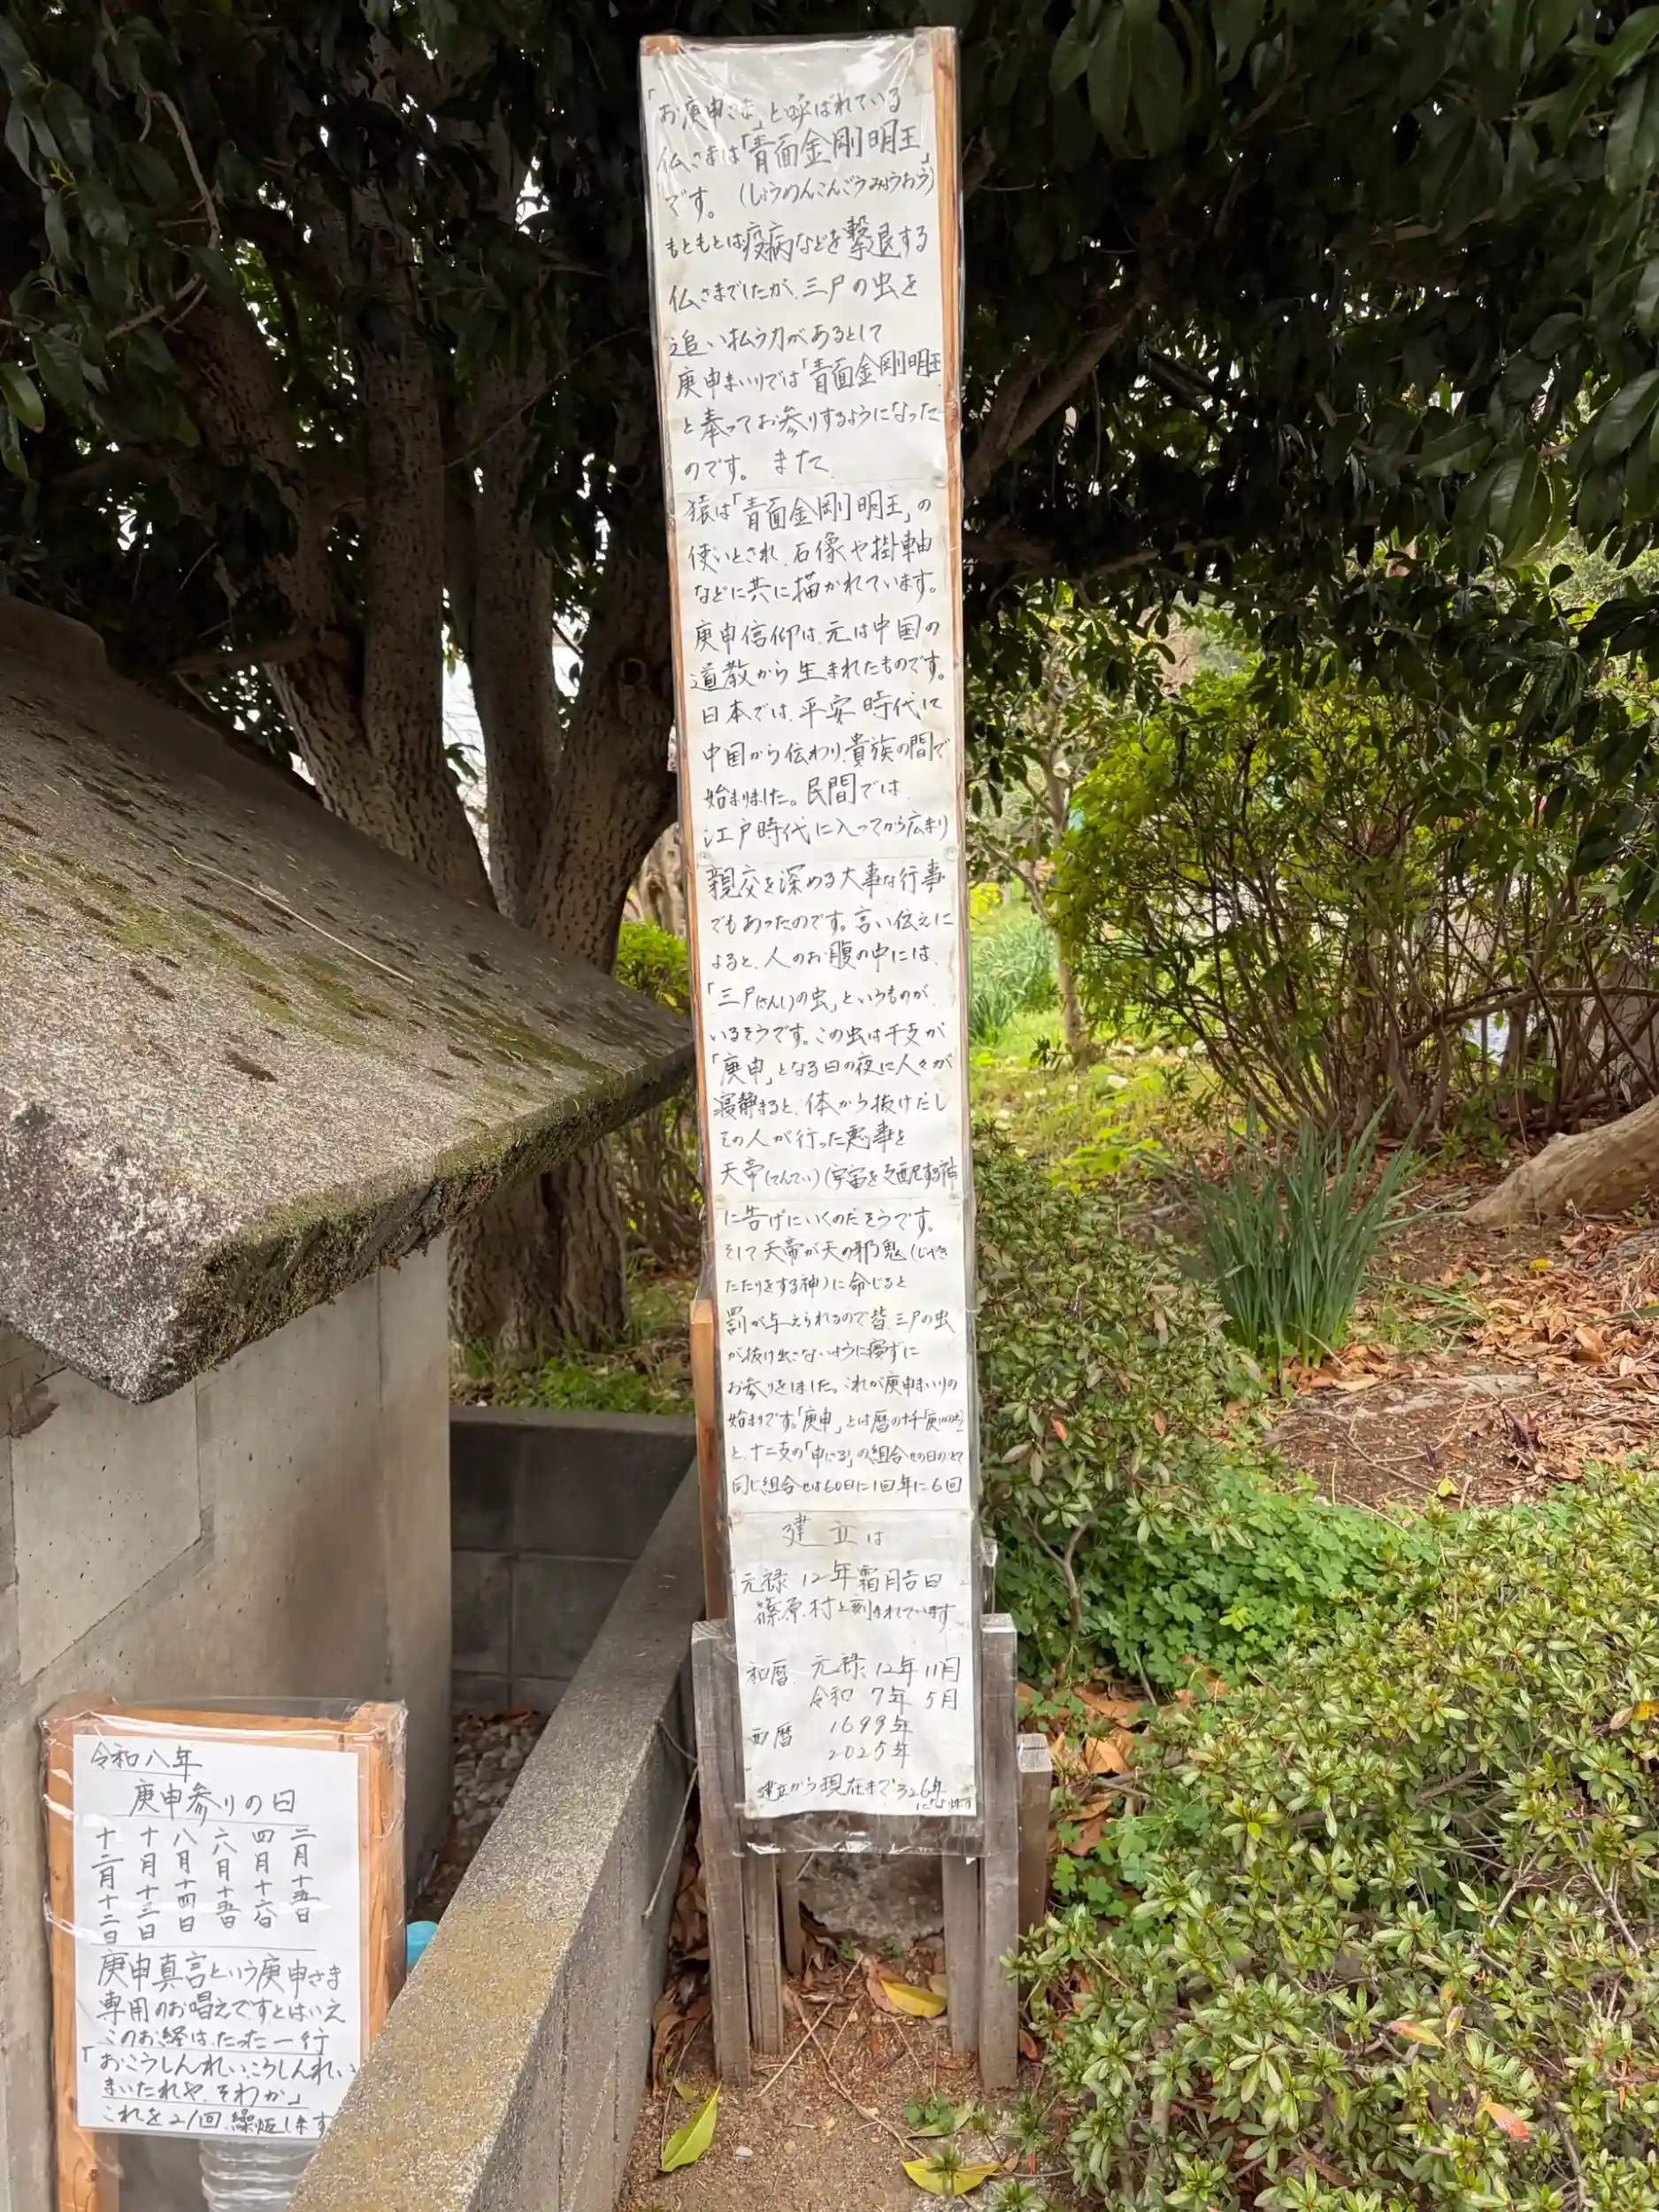 「お庚申さま」と呼ばれている
仏さまは「青面金剛明王」
です。(しょうめんこんごうみょうおう)
もともとは疫病などを撃退する
仏さまでしたが、三尸の虫を
追い払う力があるとして
庚申まいりでは「青面金剛明王
と奉ってお参りするようになった
のです。また、
猿は「青面金剛明王」の
使いとされ、石像や掛軸
などに共に描かれています。
庚申信仰は、元は中国の
道教から生まれたものです。
日本では、平安時代に
中国から伝わり、貴族の間で
始まりました。民間では、
江戸時代に入ってから広まり
親交を深める大事な行事
でもあったのです。言い伝えに
よると、人のお腹の中には、
「三尸(さんし)の虫」というものが、
いるそうです。この虫は干支が
「庚申」となる日の夜に人々が
寝静まると、体から抜けだし
その人が行った悪事を
天帝(てんてい)(宇宙を支配する神
に告げにいくのだそうです。
そして天帝が天の邪鬼(じゃき
たたりをする神)に命じると
罰が与えられるので皆、三尸の虫
が抜け出さないように寝ずに
お参りをしました。これが庚申まいりの
始まりです。「庚申」とは暦の十干「庚
と、十二支の「申(さる)」の組合せの日のことで
同じ組合せは60日に1回年に6回
建立は
元禄12年霜月吉日
篠原村と刻まれています
和暦 元禄12年11月
令和 7年 5月
西暦 1699年
2025年
建立から現在まで326年になります
令和八年
庚申参りの日
二月十五日
四月十六日
六月十五日
八月十四日
十月十三日
十二月十二日
庚申真言という庚申さま
専用のお唱えですとはいえ
このお経は、たった一行
「おこうしんれい、こうしんれい
まいたれや、そわか」
これを21回繰返します